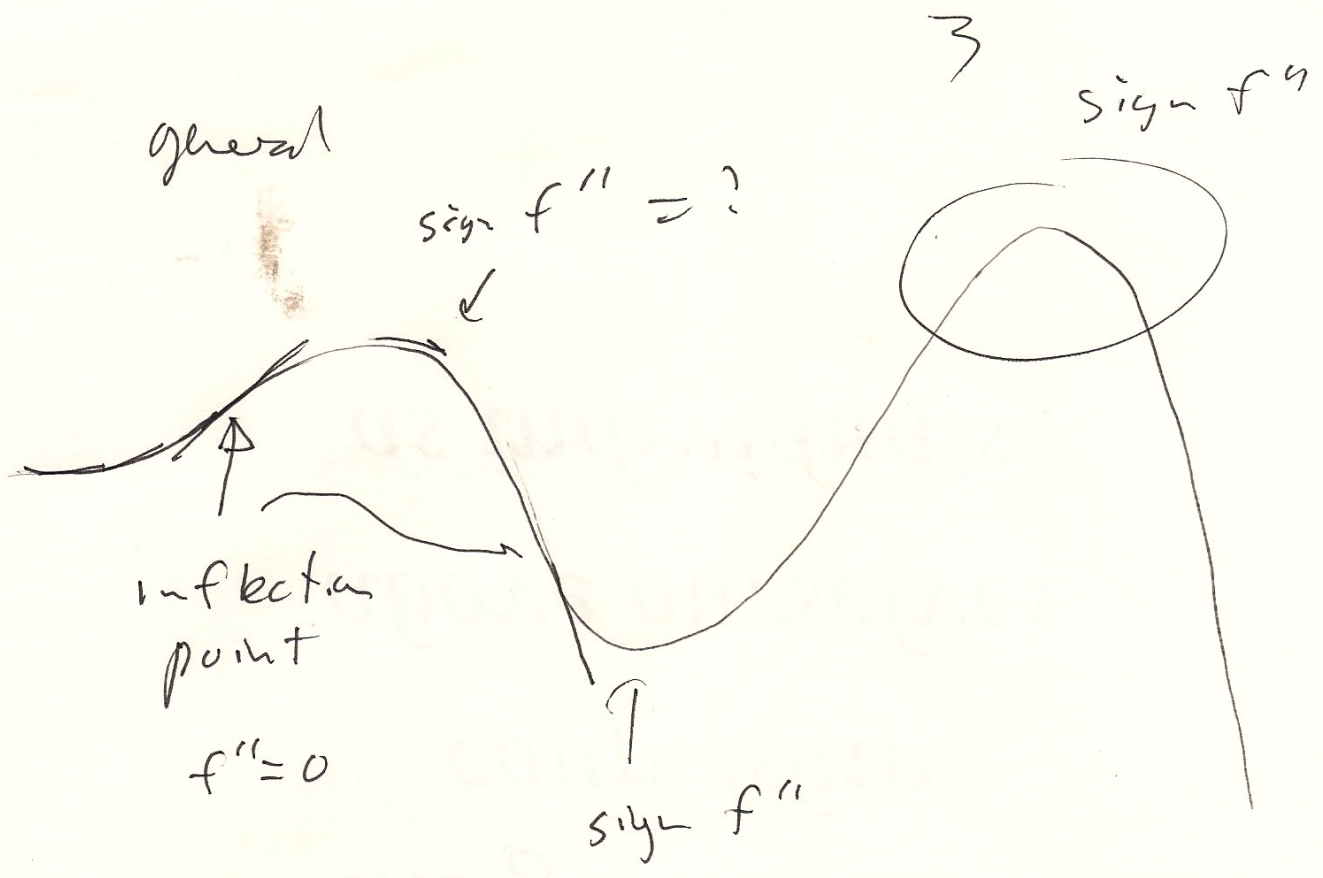 3
sign f"
general
sign f" = ?
inflection
point
f"=0
sign f"